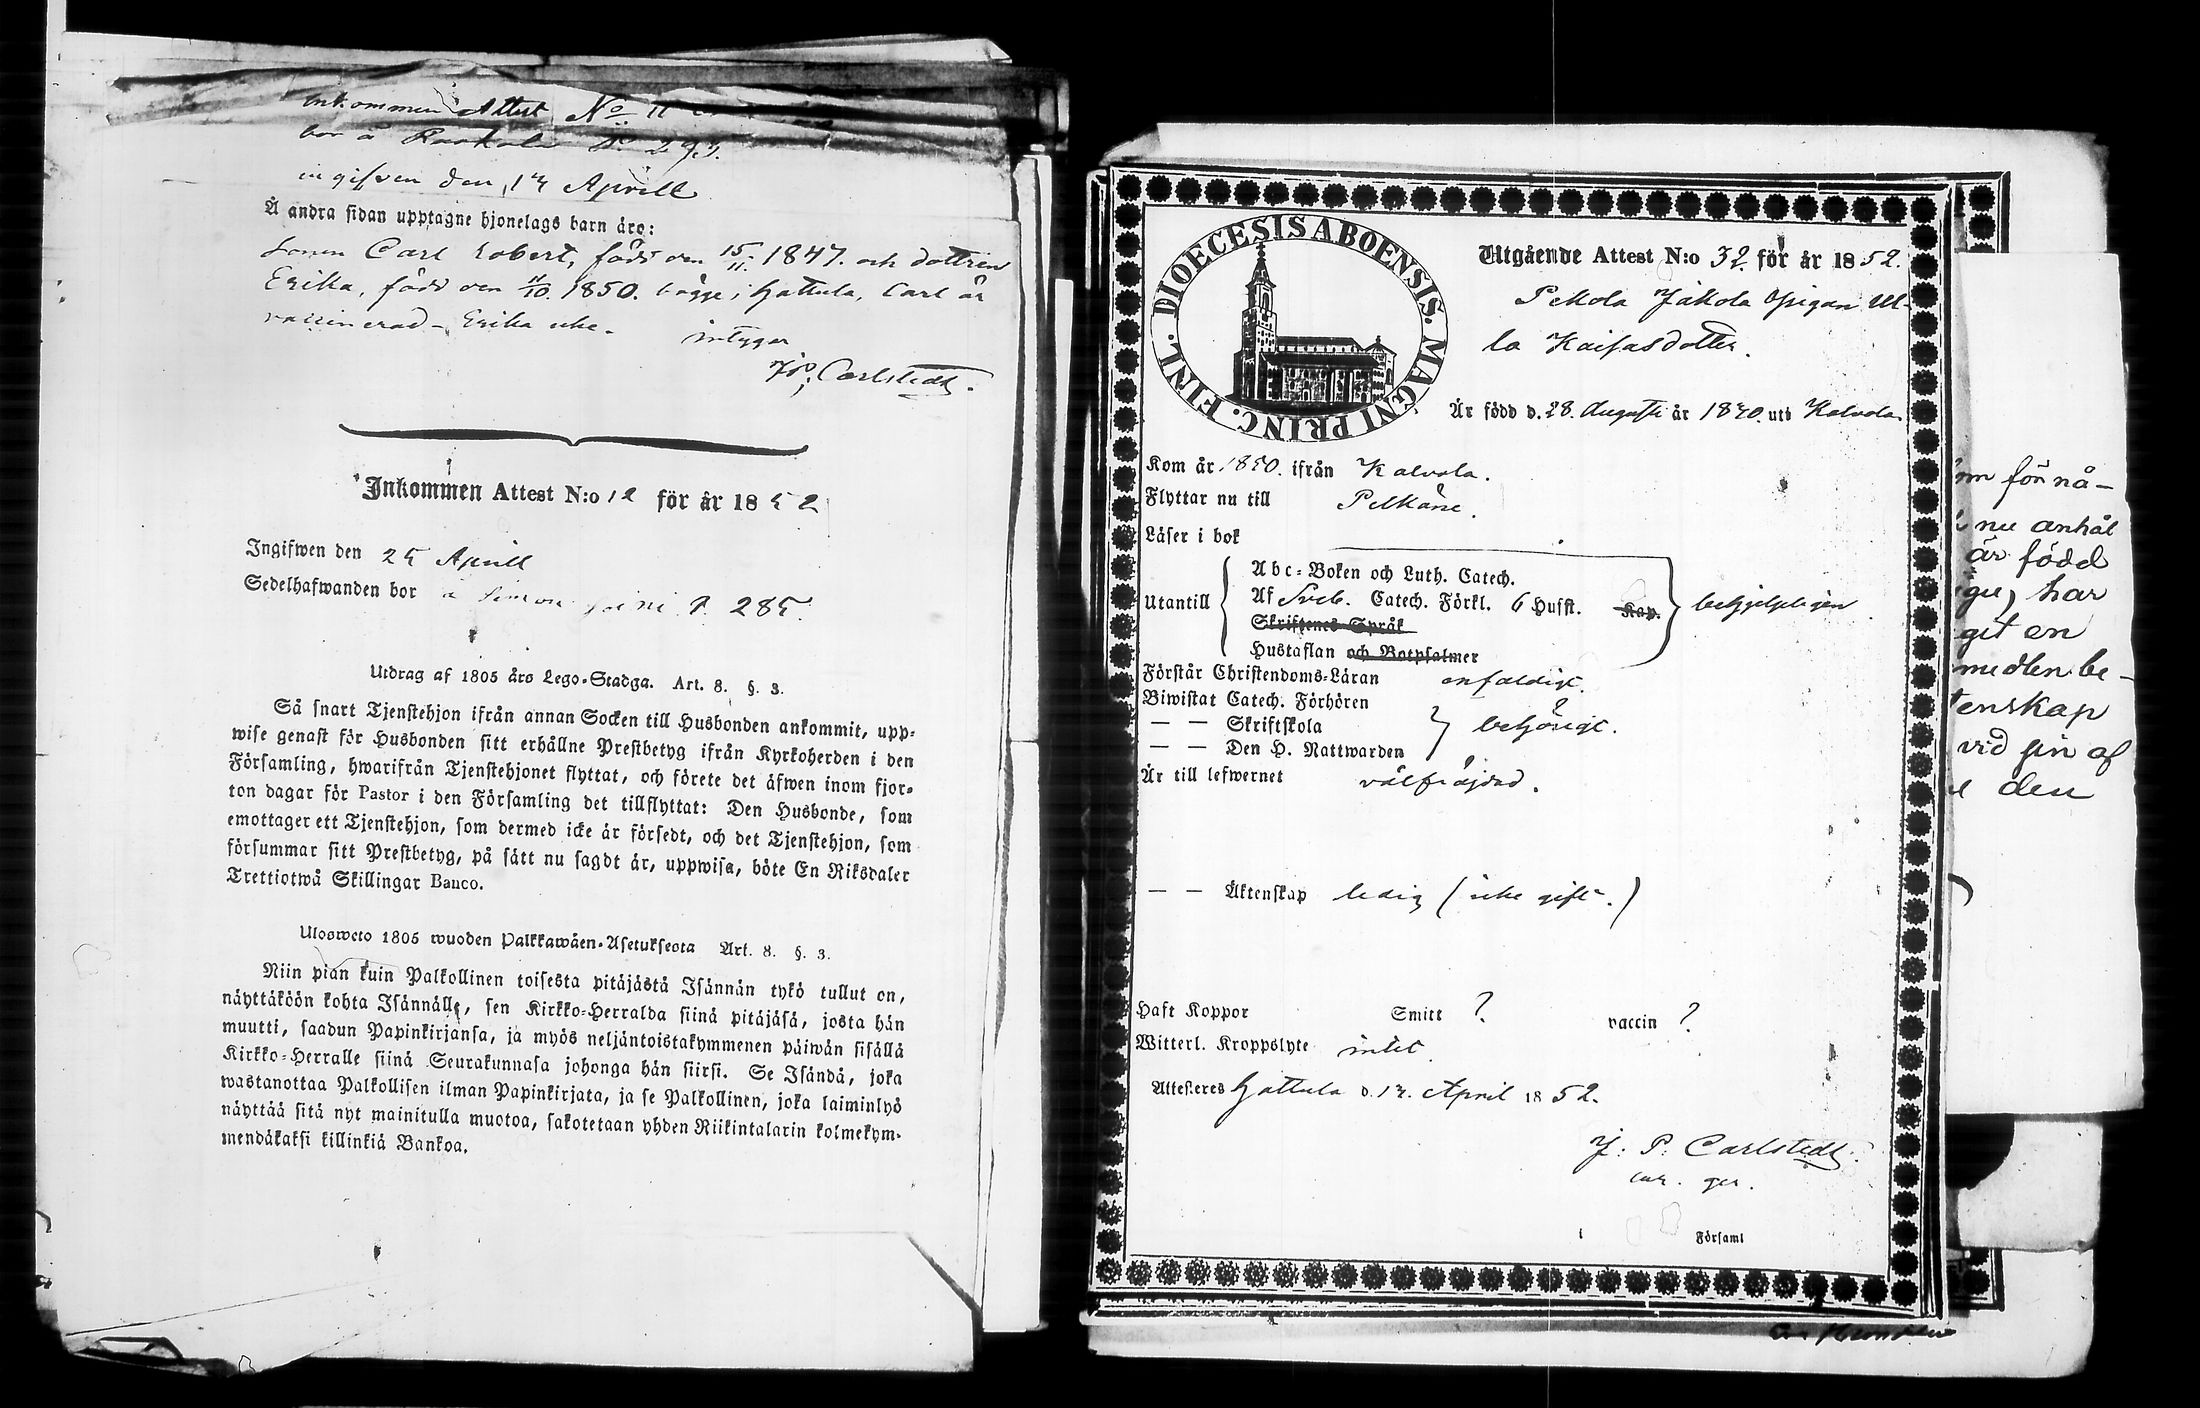 Inkommen Attest No 11
bor å
ingifven den 14 Aprill
Å andra sidan upptagne hjonelags barn äro:
sonen Carl Robert, född den 15/11. 1847. och dottren
Erika, född den 1850. bägge i Hattula, Carl är
vaccinerad - Erika icke.
intygar
J. P. Carlstedt.
Inkommen Attest N:o 12 för år 1852
Ingifwen den 25 Aprill
Sedelhafwanden bor å 285.
Utdrag af 1805 års Lego-Stadga. Art. 8. §. 3.
Så snart Tjenstehjon ifrån annan Socken till Husbonden ankommit, upp-
wise genast för Husbonden sitt erhållne Prestbetyg ifrån Kyrkoherden i den
Församling, hwarifrån Tjenstehjonet flyttat, och förete det äfwen inom fjor-
ton dagar för Pastor i den Församling det tillflyttat: Den Husbonde, som
emottager ett Tjenstehjon, som dermed icke är försedt, och det Tjenstehjon, som
försummar sitt Prestbetyg, på sätt nu sagdt är, uppwisa, böte En Riksdaler
Trettiotwå Skillingar Banco.
Ulosweto 1805 wuoden Palkkawäen-Asetuksesta Art. 8. §. 3.
Niin pian kuin Palkollinen toisesta pitäjästä Isännän tykö tullut on,
näyttäköön kohta Isännälle, sen Kirkko-Herralda siinä pitäjäsä, josta hän
muutti, saadun Papinkirjansa, ja myös neljäntoistakymmenen päiwän sisällä
Kirkko-Herralle siinä Seurakunnasa johonga hän siirsi. Se Isändä, joka
wastanottaa Palkollisen ilman Papinkirjata, ja se Palkollinen, joka laiminlyö
näyttää sitä nyt mainitulla muotoa, sakotetaan yhden Riikintalarin kolmekym-
mendäkaksi killinkiä Bankoa.
DIOECESIS ABOENSIS. MAGNI PRINC. FINL.
Utgående Attest N:o 32. för år 1852.
Pekola Jakola Pigan Ul-
la Kaifasdotter.
Är född d. 28. Augusti år 1830. uti Kalvola
Kom år 1850. ifrån Kalvola.
Flyttar nu till Pelkäne.
Läser i bok
Utantill
Abc-Boken och Luth. Catech.
Af Sveb. Catech. Förkl. 6 Hufst. Kap.
Skriftenes Språk
Hustaflan och Botpsalmer
behjelpligen
Förstår Christendoms-Läran enfaldigt.
Biwistat Catech. Förhören
— — Skriftskola
— — Den H. Nattwarden
behörigt.
Är till lefwernet välfräjdad.
— — Äktenskap ledig (icke gift.)
Haft Koppor Smitt ? vaccin ?
Witterl. Kroppslyte intet.
Attesteres Hattula d. 14. April 1852.
J. P. Carlstedt.
Församl
för nå-
nu anhål
är född
har
git en
medlen be-
tenskap
vid sin af
den